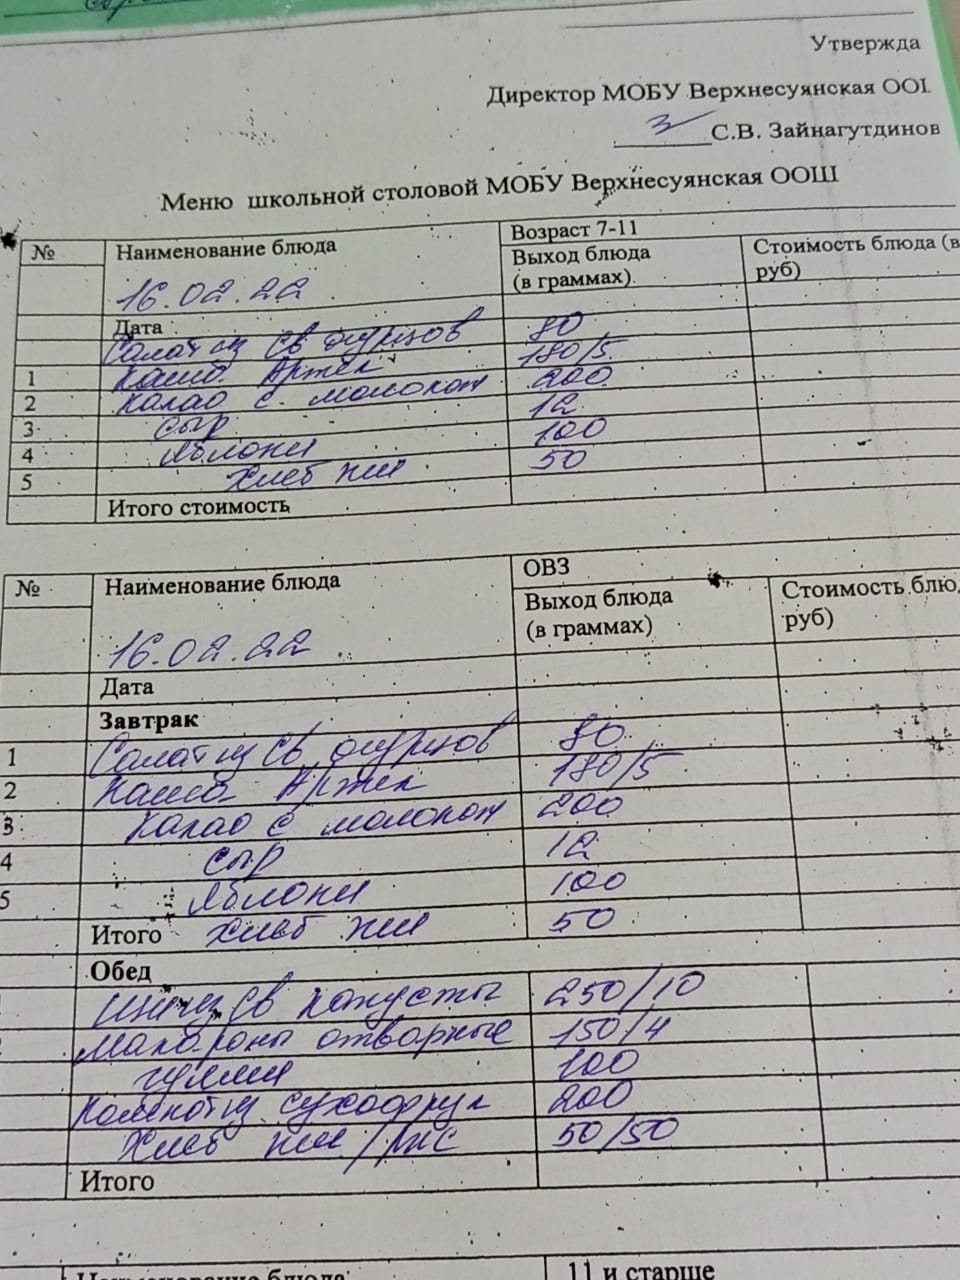 Утвержда
Директор МОБУ Верхнесуянская ООШ
С.В. Зайнагутдинов
Меню школьной столовой МОБУ Верхнесуянская ООШ
№ Наименование блюда Возраст 7-11
Выход блюда (в граммах) Стоимость блюда (в руб)
16.02.22
Дата
Салат из св огурцов 80
Каша Артек 180/5
1
2 Какао с молоком 200
3 сыр 12
4 Яблоки 100
5 Хлеб пш 50
Итого стоимость
№ Наименование блюда ОВЗ
Выход блюда (в граммах) Стоимость блю руб)
16.02.22
Дата
Завтрак
1 Салат из св огурцов 80
2 Каша Артек 180/5
3 Какао с молоком 200
4 сыр 12
5 Яблоки 100
Итого Хлеб пш 50
Обед
Щи из св капусты 250/10
Макароны отворные 150/4
гуляш 100
Компот из сухофрук 200
Хлеб пш/рж 50/50
Итого
Наименование блюда 11 и старше